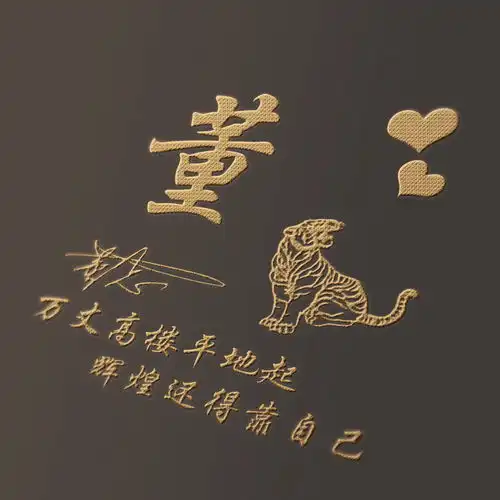 董
万丈高楼平地起
辉煌还得靠自己